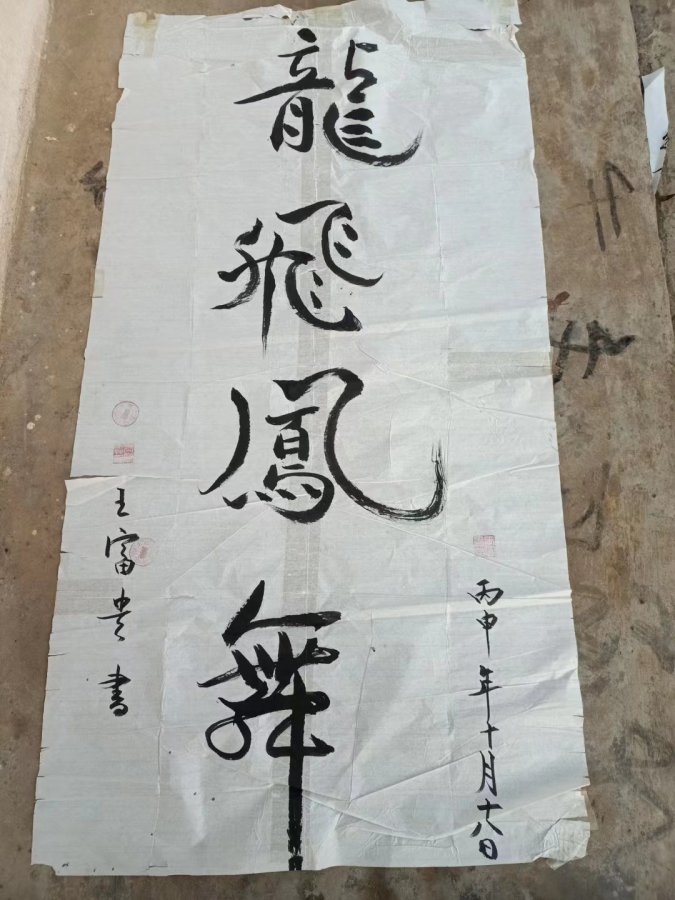 龍飛鳳舞
丙申年十月十八日
王富贵書